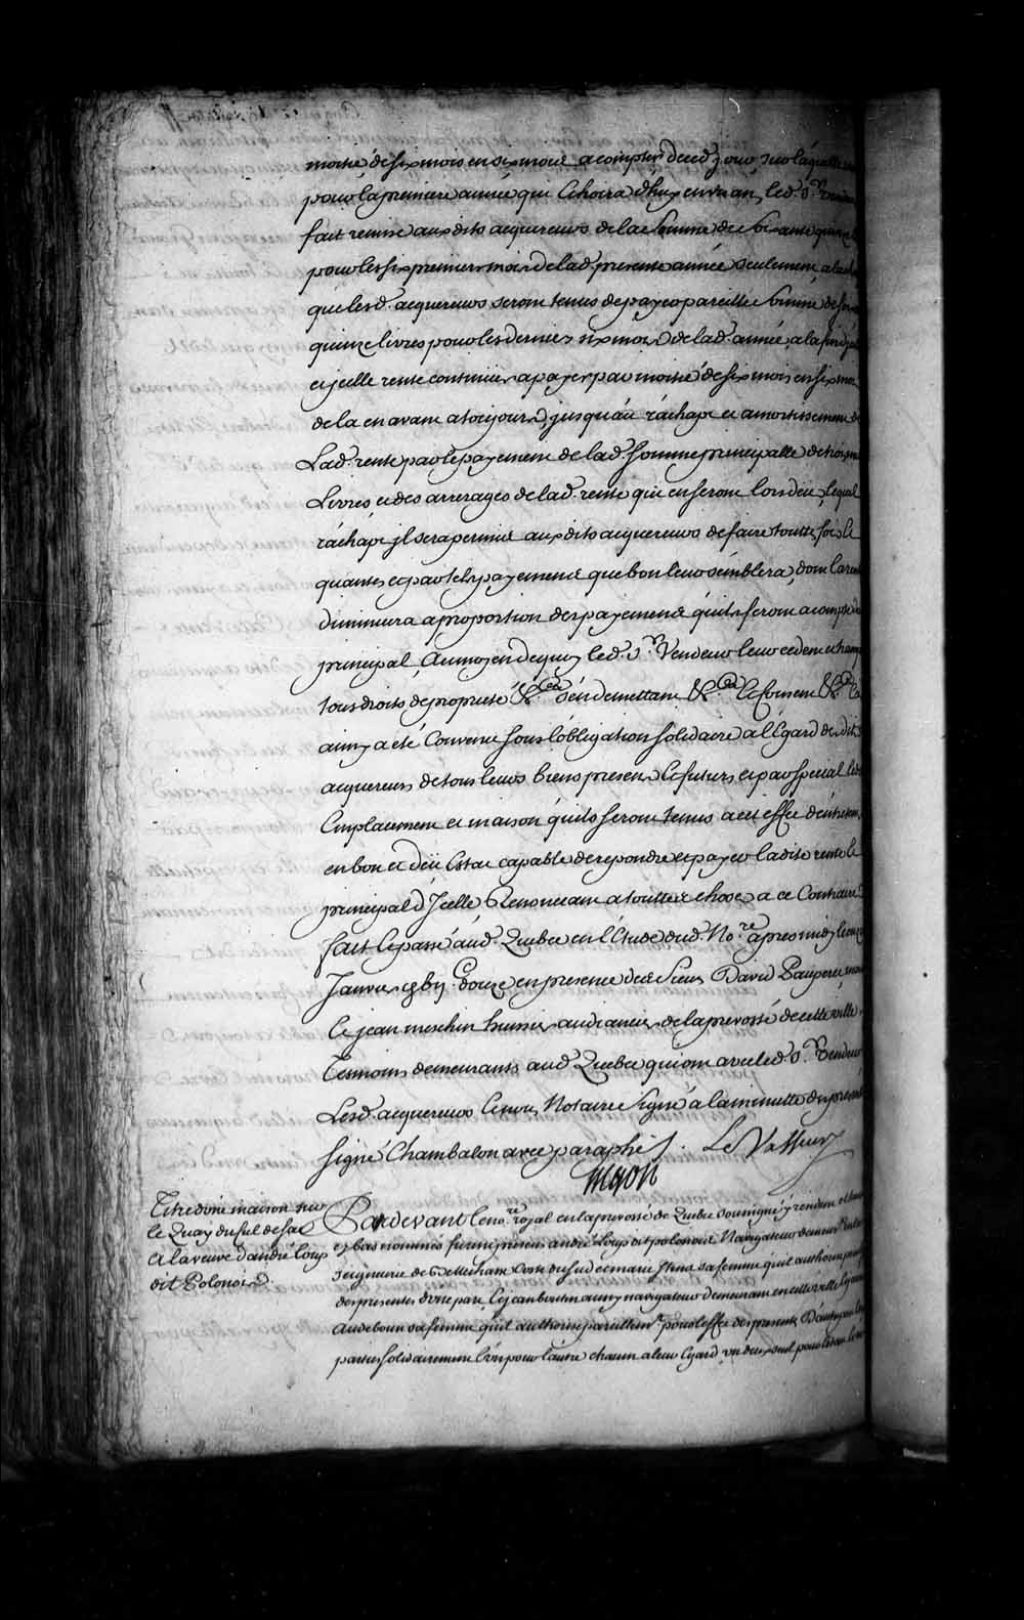 moitié de six mois en six mois a compter de ced. jour sur laquelle
pour la premiere année qui Echoira d'huy en un an, led. Sr. Vendeur
fait remise aux dits acquereurs de la somme de soixante quinze
pour les six premiers mois de lad. presente année seulement a la
que lesd. acquereurs seront tenus de payer pareille somme de
quinze livres pour les derniers six mois de lad. année, a la fin
et jcelle rente continuer a payer par moitié de six mois en six mois
de la en avant a toujours, jusqu'au rachapt et amortissement de
Lad. rente par le payement de lad. somme principalle de trois
Livres et des arrerages de lad. rente qui en seront lors deu, lequel
rachapt jl sera permis aux dits acquereurs de faire toutte fois et
quantes et par tels payemens que bon leur semblera, dont la rente
diminuera a proportion des payemens qu'ils feront a compte du
principal, Au moyen de quoy led. Sr. Vendeur leur cede
tous droits de proprieté &ca. s'en demettant &ca. Consent &ca.
ainsy a été Convenu sous l'obligation solidaire a l'Egard desdits
acquereurs de tous leurs biens presens Et futurs et par special
Emplacement et maison qu'ils seront tenus a cet effet d'entretenir
en bon et deü Estat capable de repondre et payer ladite rente et
principal d'Jcelle Renonceant a touttes choses a ce Contraire
fait Et passé aud. Quebec en l'Etude dud. Nore. apres midy
Janvier gbij. C douze en presence des Sieurs David Pauperet
Et jean meschin huissier audiancier de la prevosté de cette ville
Tesmoins demeurants aud Quebec qui ont avec led. Sr. Vendeur
Lesd. acquereurs Et nous Notaire signé a la minutte des presentes
signé Chambalon avec paraphe /. Le Vasseur
Titre d'une maison sur
le Quay du Cul de sac
a la veuve d'andré Loup
dit Polonois
Pardevant le nore. royal en la prevosté de Quebec soussigné y residant et temoins
cy bas nommés furent presens andré Loup dit polonois Navigateur demeurt.
Seigneurie de Bellechasse Coste du sud et marie sa femme qu'il authorise
des presentes d'une part, Et jean boutin aussy navigateur demeurant en cette ville
Audeboun sa femme qu'il authorise pareillemt. pour l'effet des presentes D'autre part
parties solidairement l'un pour l'autre chacun a leur Egard, un deux seul pour le tout